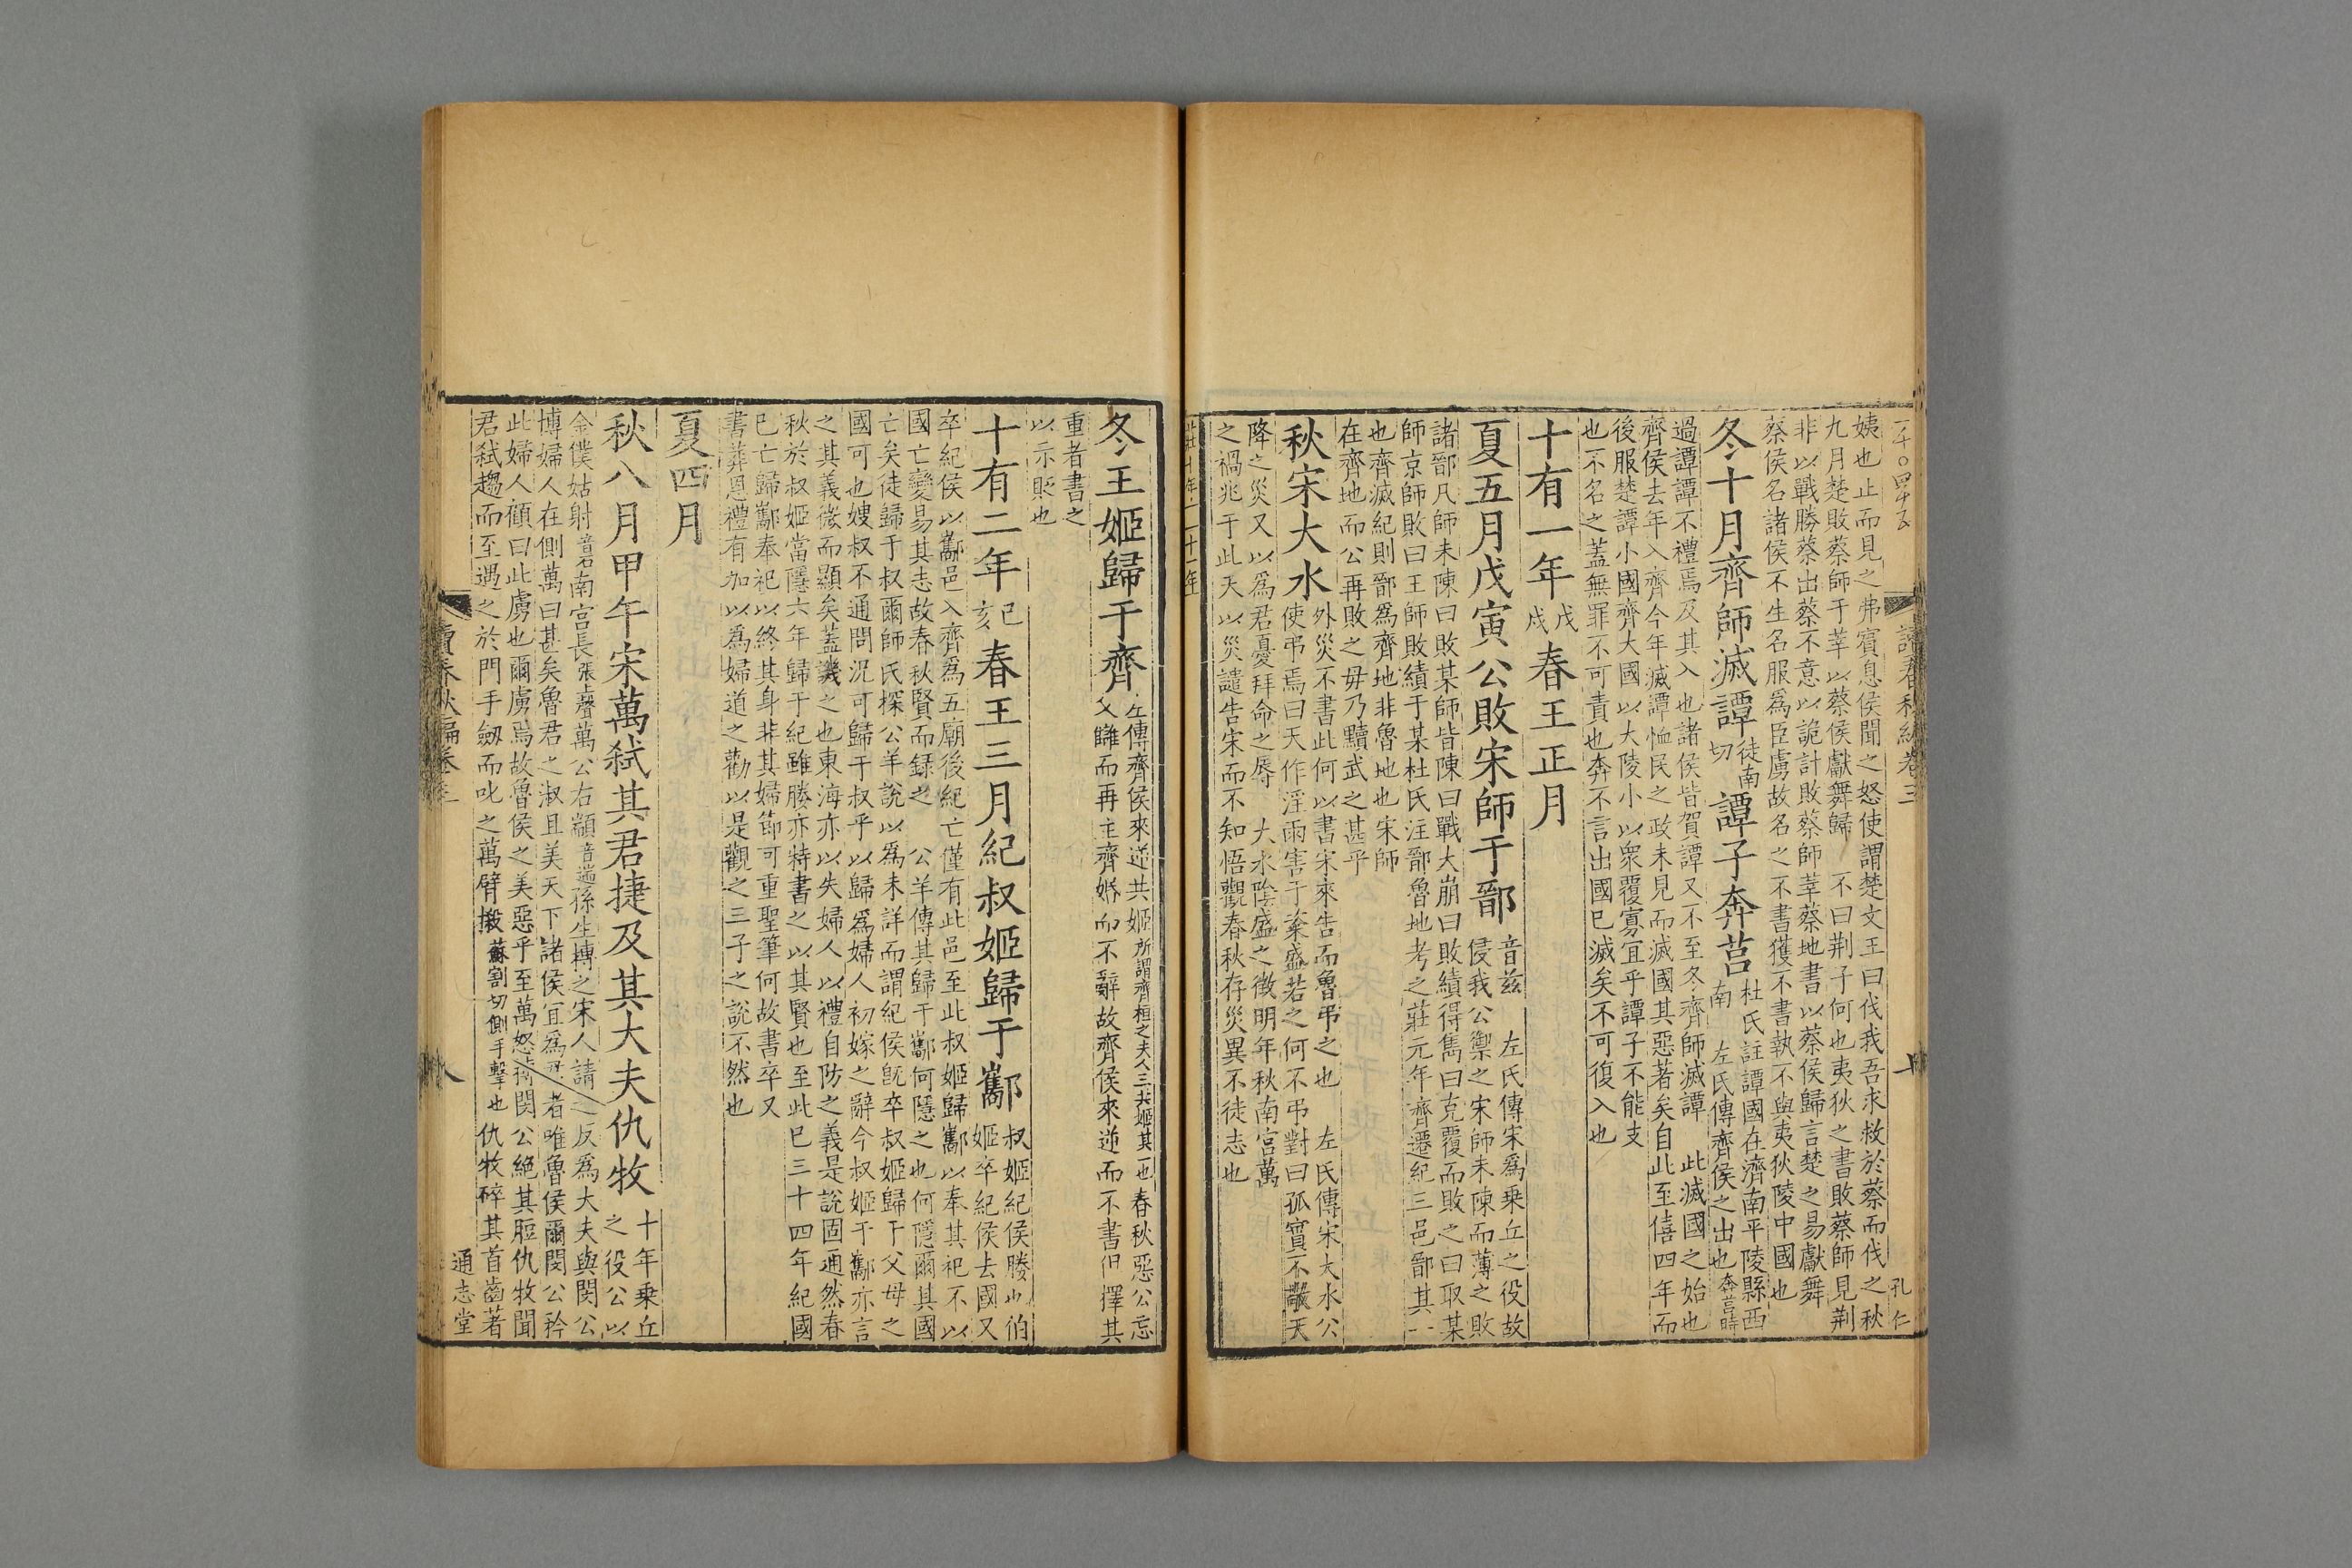 姨也止而見之弗賓息侯聞之怒使謂楚文王曰伐我吾求救於蔡而伐之秋
九月楚敗蔡師于莘以蔡侯獻舞歸　不曰荆子何也夷狄之書敗蔡師見荆
非以戰勝蔡出蔡不意以詭計敗蔡師莘蔡地書以蔡侯歸言楚之易獻舞
蔡侯名諸侯不生名服爲臣虜故名之不書獲不書執不與夷狄陵中國也
冬十月齊師滅譚徒南切譚子奔莒杜氏註譚國在濟南平陵縣西南　左氏傳齊侯之出也奔莒時
過譚譚不禮焉及其入也諸侯皆賀譚又不至冬齊師滅譚　此滅國之始也
齊侯去年入齊今年滅譚恤民之政未見而滅國其惡著矣自此至僖四年而
後服楚譚小國齊大國以大陵小以衆覆寡宜乎譚子不能支
也不名之蓋無罪不可責也奔不言出國已滅矣不可復入也
十有一年戊戌春王正月
夏五月戊寅公敗宋師于鄑音兹　左氏傳宋爲乗丘之役故侵我公禦之宋師未陳而薄之敗
諸鄑凡師未陳曰敗某師皆陳曰戰大崩曰敗績得雋曰克覆而敗之曰取某
師京師敗曰王師敗績于某杜氏注鄑魯地考之莊元年齊遷紀三邑鄑其一
也齊滅紀則鄑爲齊地非魯地也宋師
在齊地而公再敗之毋乃黷武之甚乎
秋宋大水外災不書此何以書宋來告而魯弔之也　左氏傳宋大水公使弔焉曰天作淫雨害于粢盛若之何不弔對曰孤實不敬天
降之災又以爲君憂拜命之辱　大水陰盛之徵明年秋南宮萬
之禍兆于此天以災譴告宋而不知悟觀春秋存災異不徒志也
莊十年　十一年
讀春秋編卷三
十
孔仁
冬王姬歸于齊左傳齊侯來逆共姬所謂齊桓之夫人三共姬其一也春秋惡公忘父讎而再主齊婚而不辭故齊侯來逆而不書但擇其
重者書之
以示貶也
十有二年己亥春王三月紀叔姬歸于酅叔姬紀侯媵也伯姬卒紀侯去國又
卒紀侯以酅邑入齊爲五廟後紀亡僅有此邑至此叔姬歸酅以奉其祀不以
國亡變易其志故春秋賢而録之　公羊傳其歸于酅何隱之也何隱爾其國
亡矣徒歸于叔爾師氏探公羊說以爲未詳而謂紀侯旣卒叔姬歸于父母之
國可也嫂叔不通問況可歸于叔乎以歸爲婦人初嫁之辭今叔姬于酅亦言
之其義微而顯矣蓋譏之也東海亦以失婦人以禮自防之義是說固通然春
秋於叔姬當隱六年歸于紀雖媵亦特書之以其賢也至此已三十四年紀國
已亡歸酅奉祀以終其身非其婦節可重聖筆何故書卒又
書葬恩禮有加以爲婦道之勸以是觀之三子之說不然也
夏四月
秋八月甲午宋萬弑其君捷及其大夫仇牧十年乗丘之役公以
金僕姑射音石南宮長張丈萬公右顓音遄孫生搏之宋人請之反爲大夫與閔公
博婦人在側萬曰甚矣魯君之淑且美天下諸侯宜爲君者唯魯侯爾閔公矜
此婦人顧曰此虜也爾虜焉故魯侯之美惡乎至萬怒搏閔公絶其脰仇牧聞
君弑趨而至遇之於門手劒而叱之萬臂摋蘇割切側手擊也仇牧碎其首齒著
讀春秋編卷三
八
通志堂